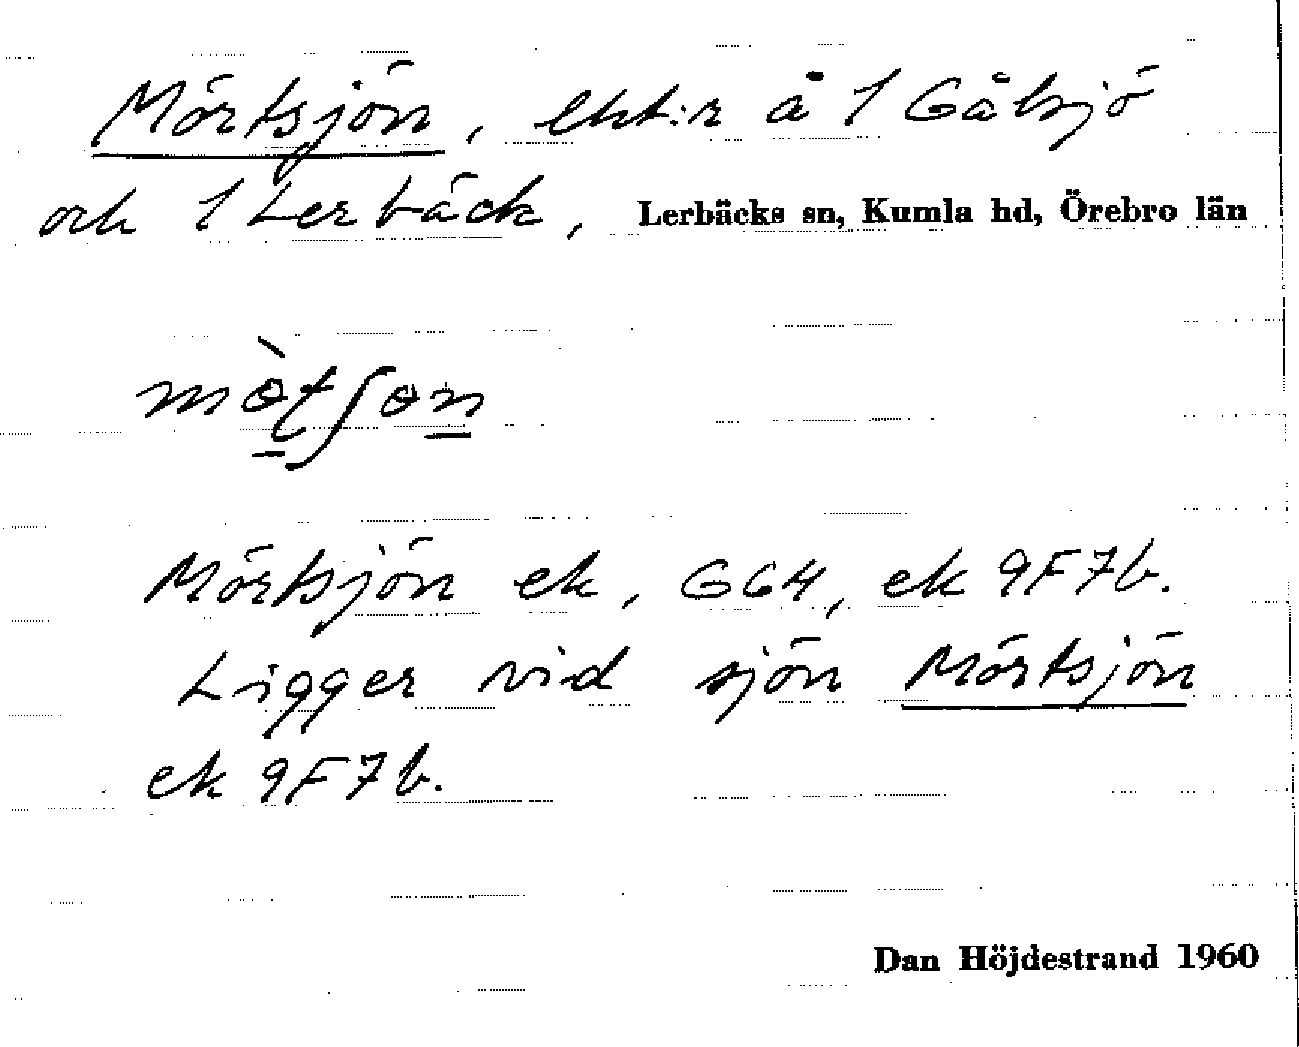 Mörtsjön, lht:r å 1 Gålsjö
och 1 Lerbäck, Lerbäcks sn, Kumla hd, Örebro län
Mörtsjön ek, GG4, ek 9F7b.
Ligger vid sjön Mörtsjön
ek 9F7b.
Dan Höjdestrand 1960